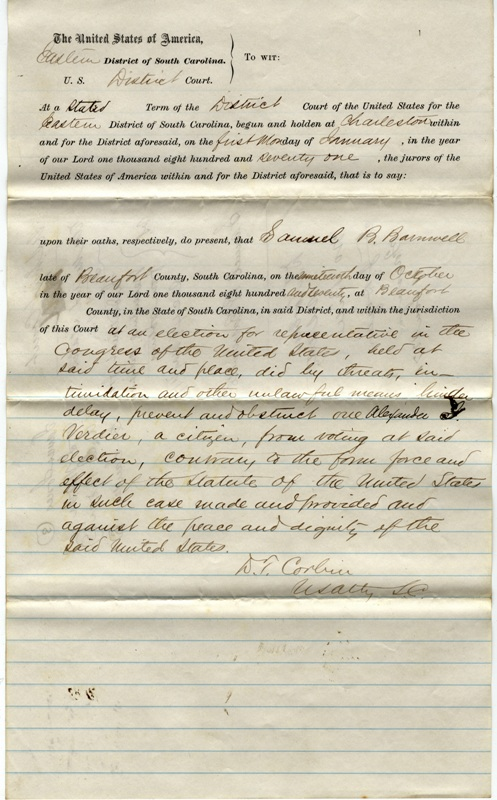 The United States of America,
Eastern District of South Carolina. } To wit:
U. S. District Court.
At a Stated Term of the District Court of the United States for the
Eastern District of South Carolina, begun and holden at Charleston within
and for the District aforesaid, on the first Monday of January, in the year
of our Lord one thousand eight hundred and seventy one, the jurors of the
United States of America within and for the District aforesaid, that is to say:
upon their oaths, respectively, do present, that Samuel B. Barnwell
late of Beaufort County, South Carolina, on the nineteenth day of October
in the year of our Lord one thousand eight hundred and seventy, at Beaufort
County, in the State of South Carolina, in said District, and within the jurisdiction
of this Court at an election for representative in the
Congress of the United States, held at
said time and place, did by threats, in-
timidation and other unlawful means hinder
delay, prevent and obstruct one Alexander
Verdier, a citizen, from voting at said
election, contrary to the form force and
effect of the statute of the United States
in such case made and provided and
against the peace and dignity of the
said United States.
D.T. Corbin
US atty S.C.